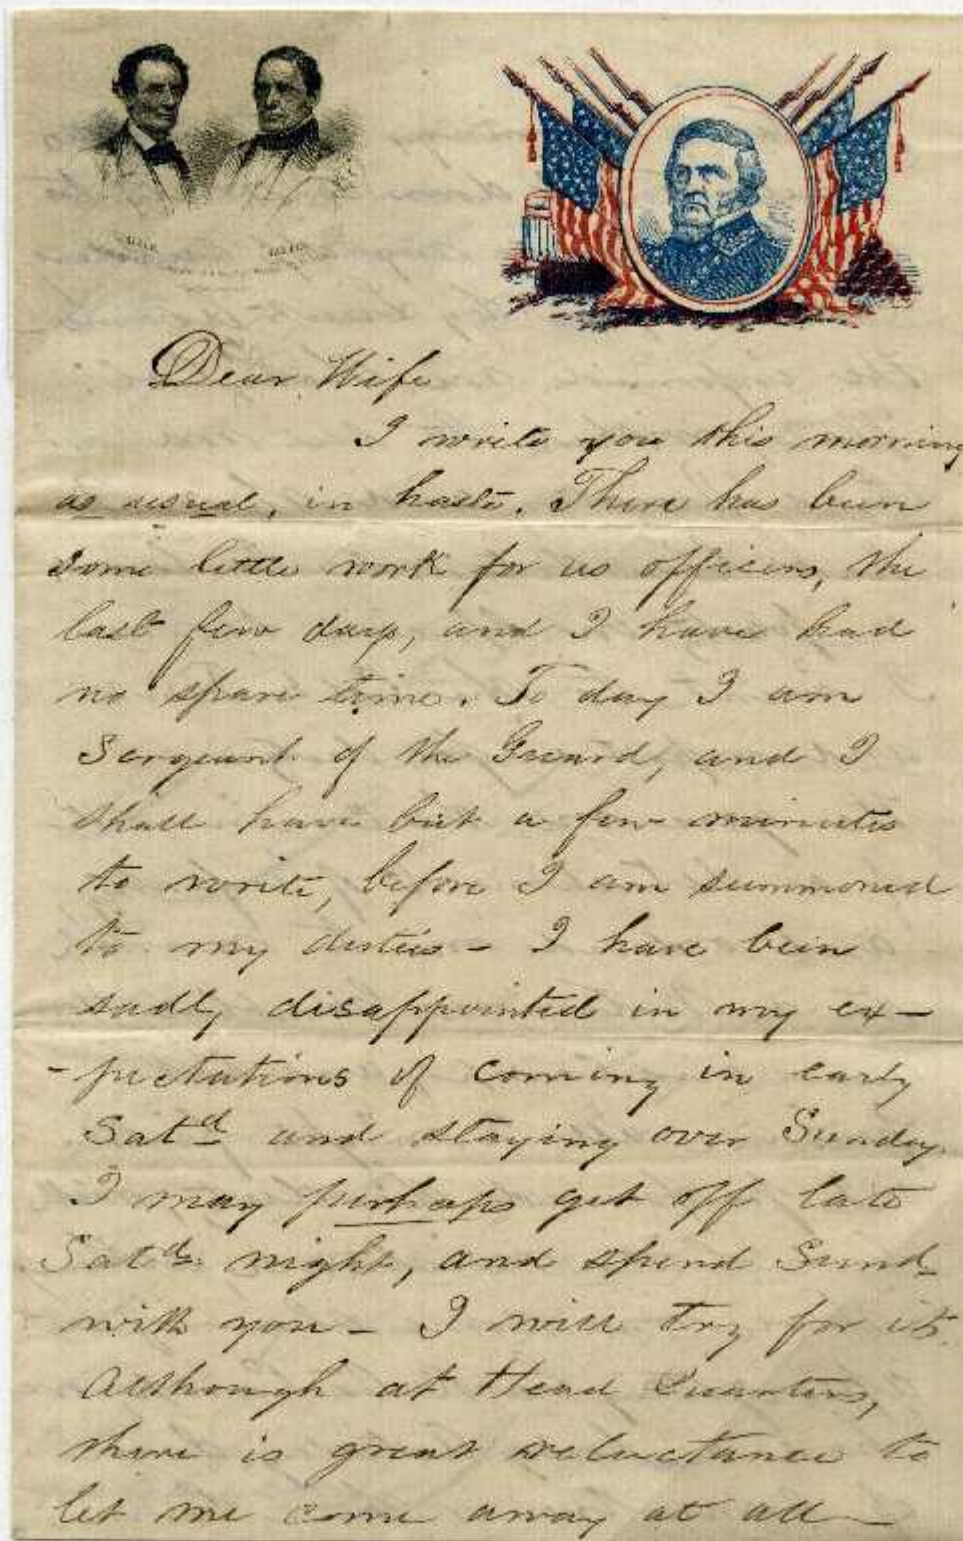 Dear Wife
I write you this morning
as usual, in haste. There has been
some little work for us officers, the
last few days, and I have had
no spare time. To day I am
Sergeant of the Guard, and I
shall have but a few minutes
to write, before I am summoned
to my duties - I have been
sadly disappointed in my ex-
-pectations of coming in early
Satd and staying over Sunday.
I may perhaps get off late
Satd night, and spend Sund
with you - I will try for it.
Although at Head Quarters,
there is great reluctance to
let me come away at all -